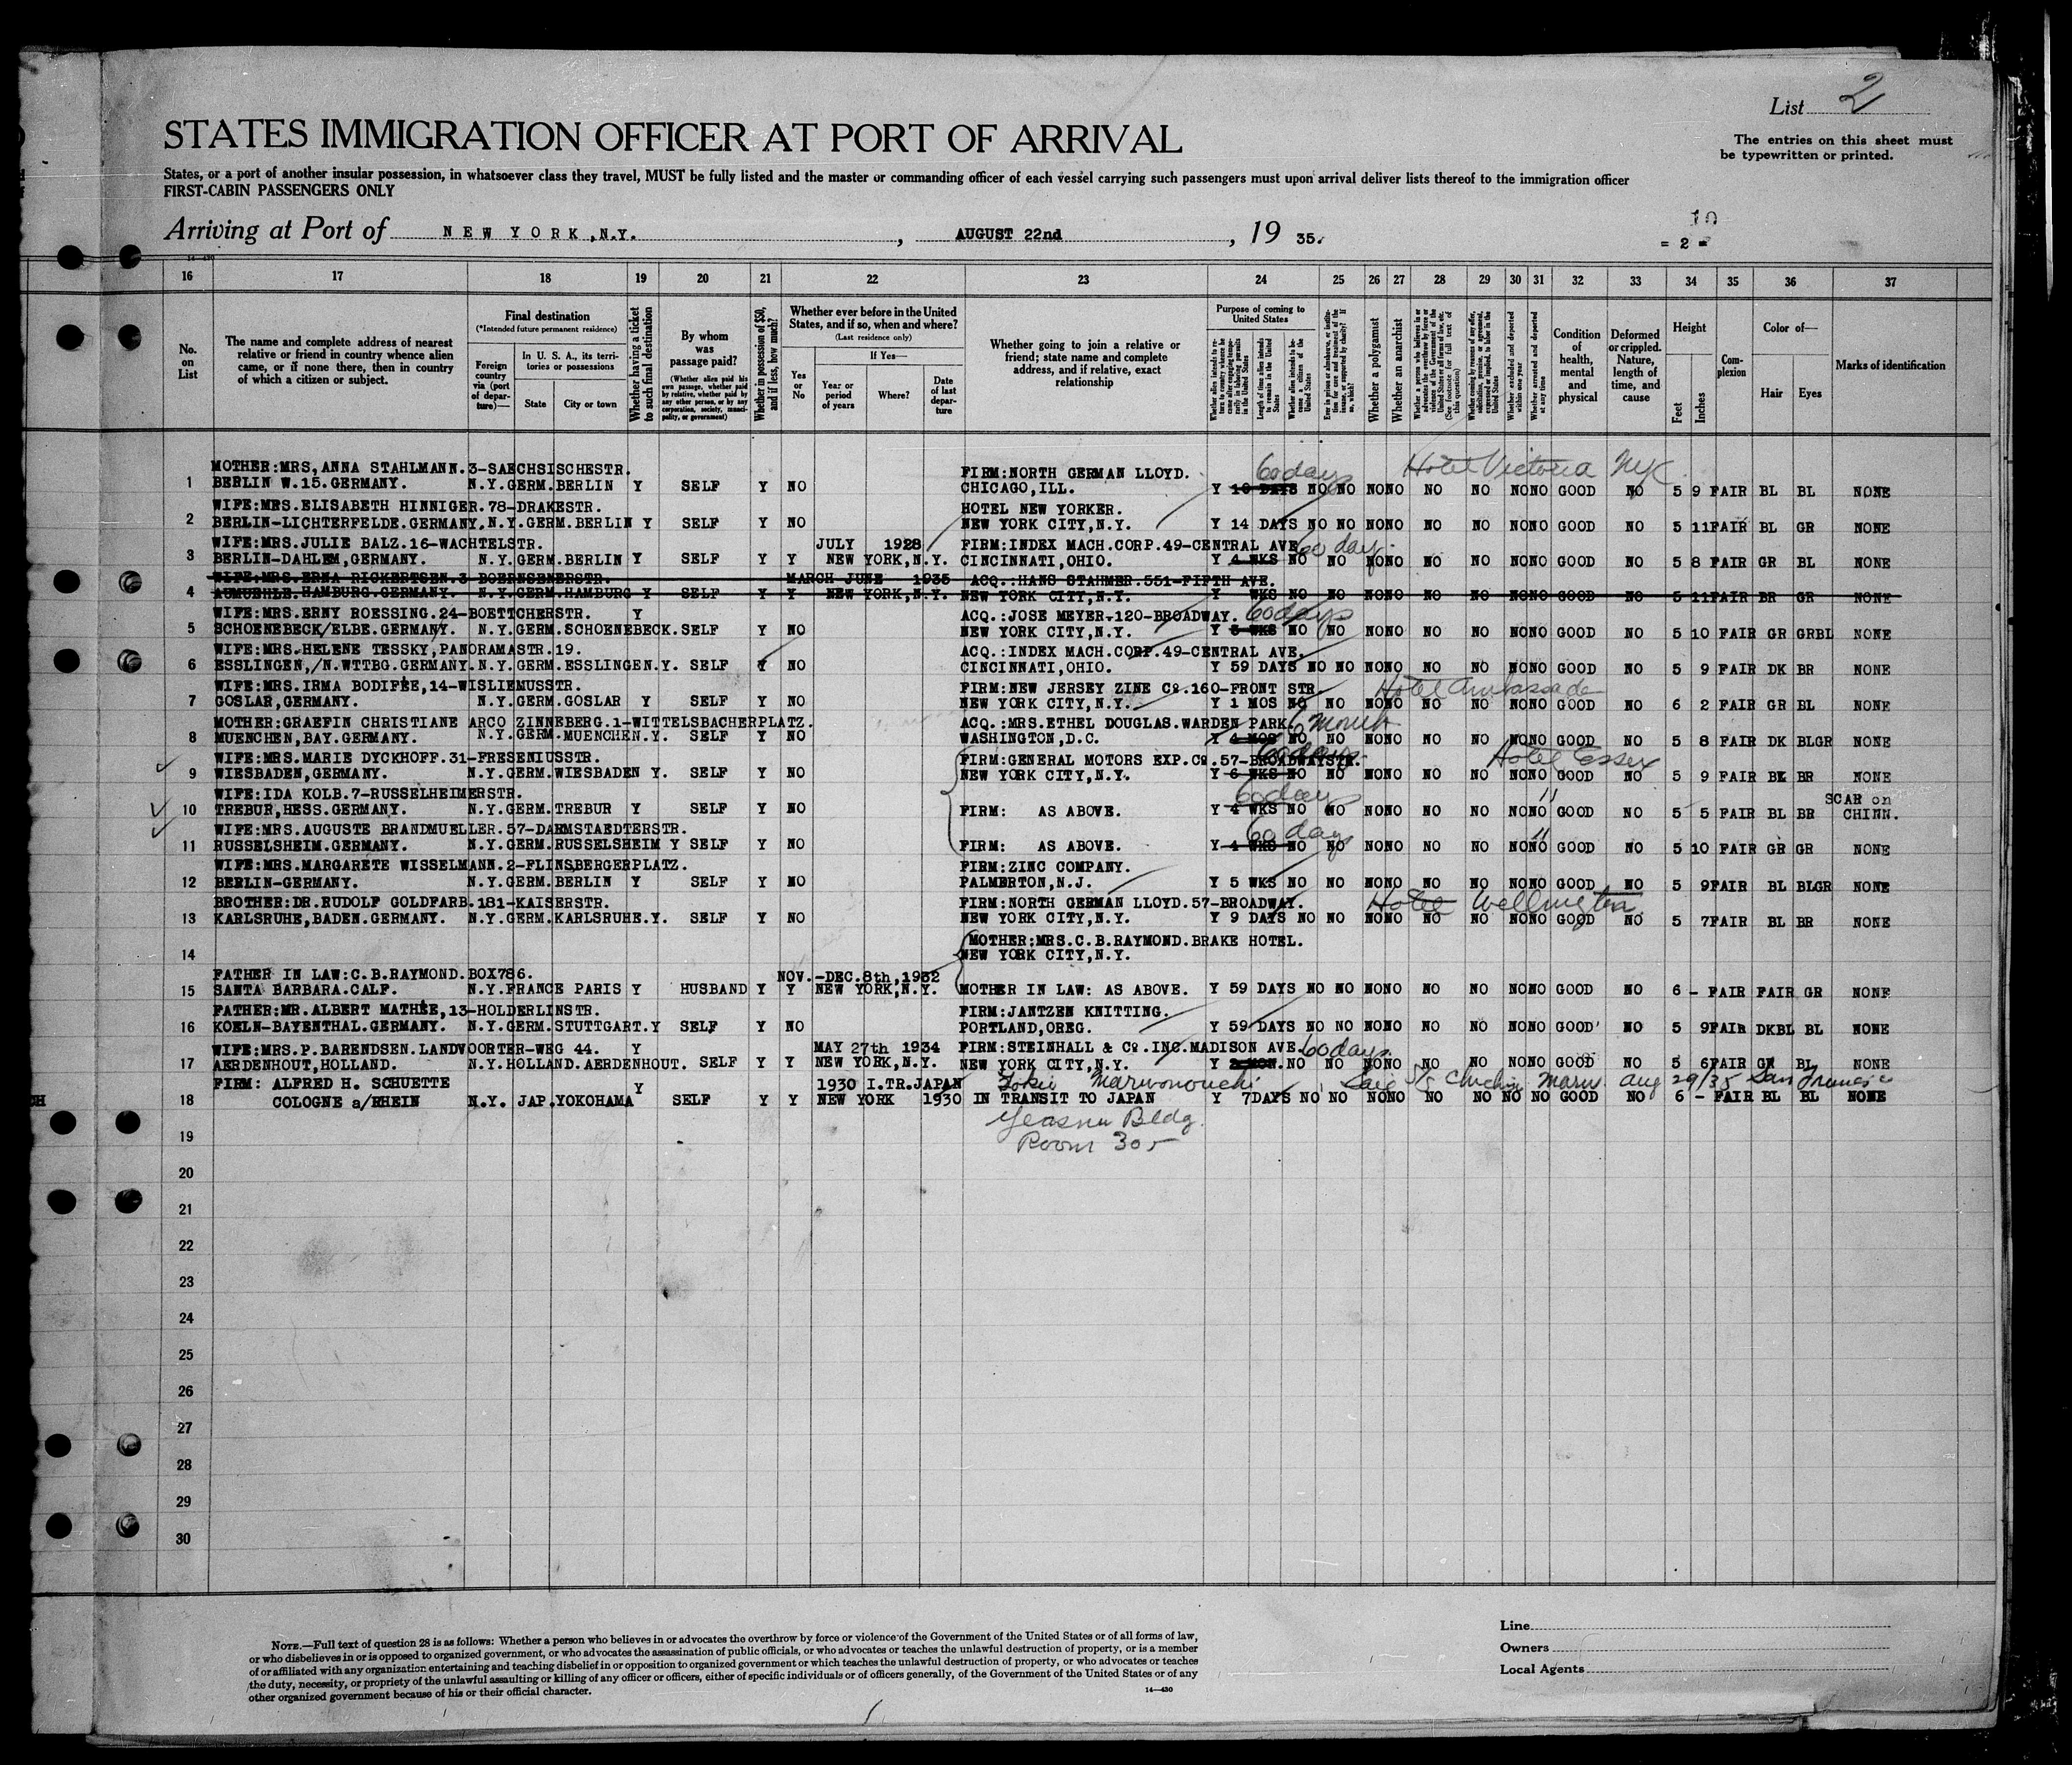 List 2
STATES IMMIGRATION OFFICER AT PORT OF ARRIVAL
The entries on this sheet must
be typewritten or printed.
States, or a port of another insular possession, in whatsoever class they travel, MUST be fully listed and the master or commanding officer of each vessel carrying such passengers must upon arrival deliver lists thereof to the immigration officer
FIRST-CABIN PASSENGERS ONLY
Arriving at Port of NEW YORK, N.Y. , AUGUST 22nd , 19 35.
10
= 2 =
16 17 18 19 20 21 22 23 24 25 26 27 28 29 30 31 32 33 34 35 36 37
No. on List
The name and complete address of nearest relative or friend in country whence alien came, or if none there, then in country of which a citizen or subject.
Final destination
(*Intended future permanent residence)
Foreign country via (port of departure)—
In U. S. A., its territories or possessions
State
City or town
Whether having a ticket to such final destination
By whom was passage paid?
(Whether alien paid his own passage, whether paid by relative, whether paid by any other person, or by any corporation, society, municipality, or government)
Whether in possession of $50, and if less, how much?
Whether ever before in the United States, and if so, when and where?
(Last residence only)
Yes or No
If Yes—
Year or period of years
Where?
Date of last departure
Whether going to join a relative or friend; state name and complete address, and if relative, exact relationship
Purpose of coming to United States
Length of time alien intends to remain in the United States
Whether a polygamist
Whether an anarchist
Whether excluded and deported within one year
Whether arrested and deported at any time
Condition of health, mental and physical
Deformed or crippled. Nature, length of time, and cause
Height
Feet
Inches
Complexion
Color of—
Hair
Eyes
Marks of identification
MOTHER:MRS,ANNA STAHLMANN.3-SAECHSISCHESTR. FIRM:NORTH GERMAN LLOYD. 60 days Hotel Victoria NYC
1 BERLIN W.15.GERMANY. N.Y.GERM.BERLIN Y SELF Y NO CHICAGO,ILL. Y 10 DAYS NO NO NONO NO NO NONO GOOD NO 5 9 FAIR BL BL NONE
WIFE:MRS.ELISABETH HINNIGER.78-DRAKESTR. HOTEL NEW YORKER.
2 BERLIN-LICHTERFELDE.GERMANY.N.Y.GERM.BERLIN Y SELF Y NO NEW YORK CITY,N.Y. Y 14 DAYS NO NO NONO NO NO NONO GOOD NO 5 11FAIR BL GR NONE
WIFE:MRS.JULIE BALZ.16-WACHTELSTR. JULY 1928 FIRM:INDEX MACH.CORP.49-CENTRAL AVE 60 days
3 BERLIN-DAHLEM,GERMANY. N.Y.GERM.BERLIN Y SELF Y Y NEW YORK,N.Y. CINCINNATI,OHIO. Y 4 WKS NO NO NONO NO NO NONO GOOD NO 5 8 FAIR GR BL NONE
WIFE:MRS.ERNA RICKERTSEN.3 BOERNSENERSTR. MARCH JUNE 1935 ACQ.:HANS STAHMER.551-FIFTH AVE.
4 AUMUEHLE.HAMBURG.GERMANY. N.Y.GERM.HAMBURG Y SELF Y Y NEW YORK,N.Y. NEW YORK CITY,N.Y. Y WKS NO NO NONO NO NO NONO GOOD NO 5 11FAIR BR GR NONE
WIFE:MRS.ERNY ROESSING.24-BOETTCHERSTR. Y ACQ.:JOSE MEYER-120-BROADWAY. 60 days
5 SCHOENEBECK/ELBE.GERMANY. N.Y.GERM.SCHOENEBECK.SELF Y NO NEW YORK CITY,N.Y. Y WKS NO NO NONO NO NO NONO GOOD NO 5 10 FAIR GR GRBL NONE
WIFE:MRS.HELENE TESSKY,PANORAMASTR.19. ACQ.:INDEX MACH.CORP.49-CENTRAL AVE.
6 ESSLINGEN,/N.WTTBG.GERMANY.N.Y.GERM.ESSLINGEN.Y. SELF Y NO CINCINNATI,OHIO. Y 59 DAYS NO NO NONO NO NO NONO GOOD NO 5 9 FAIR DK BR NONE
WIFE:MRS.IRMA BODIFEE,14-WISLIEMUSSTR. FIRM:NEW JERSEY ZINE Co.160-FRONT STR. Hotel Ambassade
7 GOSLAR,GERMANY. N.Y.GERM.GOSLAR Y SELF Y NO NEW YORK CITY,N.Y. Y 1 MOS NO NO NONO NO NO NONO GOOD NO 6 2 FAIR GR BL NONE
MOTHER:GRAEFIN CHRISTIANE ARCO ZINNEBERG.1-WITTELSBACHERPLATZ. ACQ.:MRS.ETHEL DOUGLAS.WARDEN PARK. 6 Month
8 MUENCHEN,BAY.GERMANY. N.Y.GERM.MUENCHEN.Y. SELF Y NO WASHINGTON,D.C. Y 4 MOS NO NO NONO NO NO NONO GOOD NO 5 8 FAIR DK BLGR NONE
WIFE:MRS.MARIE DYCKHOFF.31-FRESENIUSSTR. FIRM:GENERAL MOTORS EXP.Co.57-BROADWAYSTR. 60 days Hotel Essex
9 WIESBADEN,GERMANY. N.Y.GERM.WIESBADEN Y. SELF Y NO NEW YORK CITY,N.Y. Y 6 WKS NO NO NONO NO NO NONO GOOD NO 5 9 FAIR BK BR NONE
WIFE:IDA KOLB.7-RUSSELHEIMERSTR. 60 days " SCAR on
10 TREBUR,HESS.GERMANY. N.Y.GERM.TREBUR Y SELF Y NO FIRM: AS ABOVE. Y 4 WKS NO NO NONO NO NO NONO GOOD NO 5 5 FAIR BL BR CHINN.
WIFE:MRS.AUGUSTE BRANDMUELLER.57-DARMSTAEDTERSTR. 60 days "
11 RUSSELSHEIM.GERMANY. N.Y.GERM.RUSSELSHEIM Y SELF Y NO FIRM: AS ABOVE. Y 4 WKS NO NO NONO NO NO NONO GOOD NO 5 10 FAIR GR GR NONE
WIFE:MRS.MARGARETE WISSELMANN.2-FLINSBERGERPLATZ. FIRM:ZINC COMPANY.
12 BERLIN-GERMANY. N.Y.GERM.BERLIN Y SELF Y NO PALMERTON,N.J. Y 5 WKS NO NO NONO NO NO NONO GOOD NO 5 9FAIR BL BLGR NONE
BROTHER:DR.RUDOLF GOLDFARB.181-KAISERSTR. FIRM:NORTH GERMAN LLOYD.57-BROADWAY. Hotel Wellington
13 KARLSRUHE,BADEN.GERMANY. N.Y.GERM.KARLSRUHE.Y. SELF Y NO NEW YORK CITY,N.Y. Y 9 DAYS NO NO NONO NO NO NONO GOOD NO 5 7FAIR BL BR NONE
MOTHER:MRS.C.B.RAYMOND.BRAKE HOTEL.
14 NEW YORK CITY,N.Y.
FATHER IN LAW:C.B.RAYMOND.BOX786. NOV.-DEC.8th,1932
15 SANTA BARBARA.CALF. N.Y.FRANCE PARIS Y HUSBAND Y Y NEW YORK,N.Y. MOTHER IN LAW: AS ABOVE. Y 59 DAYS NO NO NONO NO NO NONO GOOD NO 6 - FAIR FAIR GR NONE
FATHER:MR.ALBERT MATHEE,13-HOLDERLINSTR. FIRM:JANTZEN KNITTING.
16 KOELN-BAYENTHAL.GERMANY. N.Y.GERM.STUTTGART.Y SELF Y NO PORTLAND,OREG. Y 59 DAYS NO NO NONO NO NO NONO GOOD NO 5 9FAIR DKBL BL NONE
WIFE:MRS.P.BARENDSEN.LANDVOORTER-WEG 44. Y MAY 27th 1934 FIRM:STEINHALL & Co.INC.MADISON AVE. 60 days
17 AERDENHOUT,HOLLAND. N.Y.HOLLAND.AERDENHOUT. SELF Y Y NEW YORK,N.Y. NEW YORK CITY,N.Y. Y 2 MON.NO NO NONO NO NO NONO GOOD NO 5 6FAIR GR BL NONE
FIRM: ALFRED H. SCHUETTE Y 1930 I.TR.JAPAN Tokio Marunouchi S/S Chichibu Maru Aug 29/35 San Francisc
18 COLOGNE a/RHEIN N.Y. JAP.YOKOHAMA SELF Y Y NEW YORK 1930 IN TRANSIT TO JAPAN Y 7DAYS NO NO NONO NO NO NO NO GOOD NO 6 - FAIR BL BL NONE
19 Bldg.
Room 305
20
21
22
23
24
25
26
27
28
29
30
NOTE.—Full text of question 28 is as follows: Whether a person who believes in or advocates the overthrow by force or violence of the Government of the United States or of all forms of law,
or who disbelieves in or is opposed to organized government, or who advocates the assassination of public officials, or who advocates or teaches the unlawful destruction of property, or is a member
of or affiliated with any organization entertaining and teaching disbelief in or opposition to organized government or which teaches the unlawful destruction of property, or who advocates or teaches
the duty, necessity, or propriety of the unlawful assaulting or killing of any officer or officers, either of specific individuals or of officers generally, of the Government of the United States or of any
other organized government because of his or their official character.
14—430
Line
Owners
Local Agents